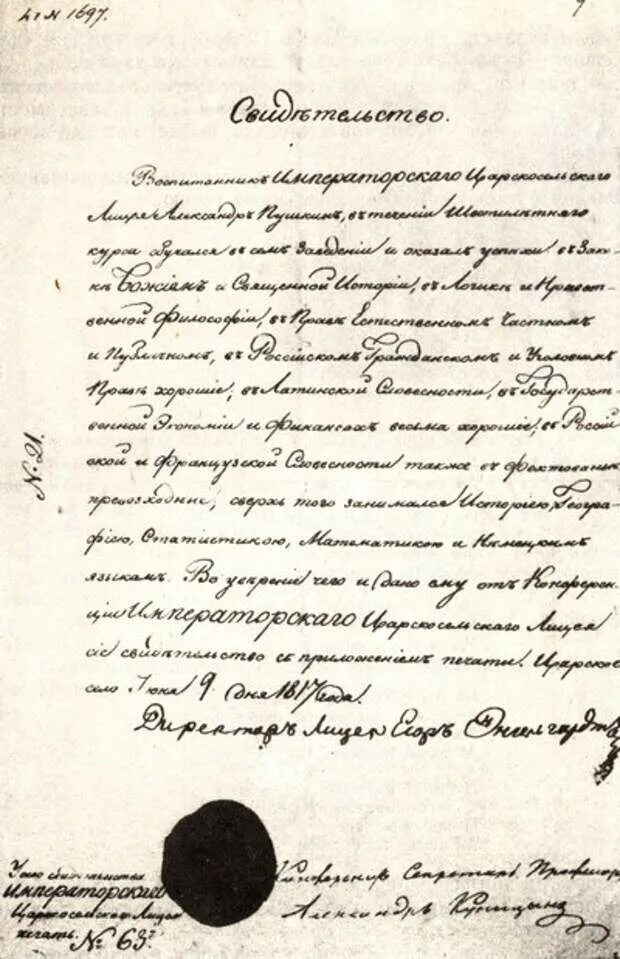 № 1697.
Свидѣтельство.
Воспитанникъ Императорскаго Царскосельскаго
Лицея Александръ Пушкинъ, въ теченіи Шестилѣтняго
курса обучался въ семъ Заведеніи и оказалъ успехи въ Зако-
нѣ Божіемъ и Священной Исторіи, въ Логикѣ и Нравст-
венной Философіи, въ Правѣ Естественномъ Частномъ
и Публичномъ, въ Россійскомъ Гражданскомъ и Уголовномъ
Правѣ хорошіе; въ Латинской Словесности, въ Государст-
венной Экономіи и Финансахъ весьма хорошіе; въ Россій
ской и Французской Словесности также въ Фехтованьи
превозходные, сверхъ того занимался Исторіею, Геогра-
фіею, Статистикою, Математикою и Нѣмецкимъ
языкомъ. Во увѣреніе чего и дано ему отъ Конферен-
ціи Императорскаго Царскосельскаго Лицея
сіе свидѣтельство съ приложеніемъ печати. Царское
село Іюня 9 дня 1817 года.
Директоръ Лицея Егоръ Энгельгардтъ
№. 21.
Конференцъ Секретарь Профессоръ
Александръ Куницынъ
Императорскаго
Царскосельскаго Лицея
печать.
№ 63.